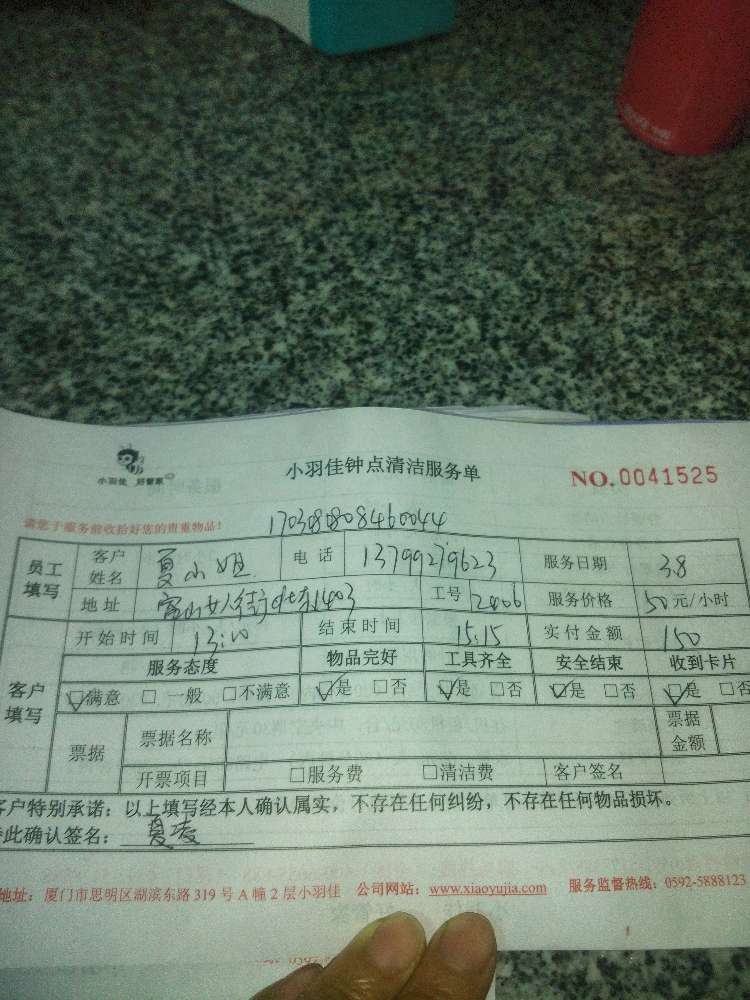 小羽佳 好管家
小羽佳钟点清洁服务单
NO.0041525
请您于服务前收拾好您的贵重物品!
1703080808460044
员工填写 客户姓名 夏小姐 电话 13799279623 服务日期 3.8
地址 富山女人街 1403 工号 2406 服务价格 50元/小时
客户填写 开始时间 13:10 结束时间 15:15 实付金额 150
服务态度 物品完好 工具齐全 安全结束 收到卡片
☑满意 □一般 □不满意 ☑是 □否 ☑是 □否 ☑是 □否 ☑是 □否
票据 票据名称 票据金额
开票项目 □服务费 □清洁费 客户签名
客户特别承诺：以上填写经本人确认属实，不存在任何纠纷，不存在任何物品损坏。
此确认签名：夏凌
地址：厦门市思明区湖滨东路319号A幢2层小羽佳 公司网站：www.xiaoyujia.com 服务监督热线：0592-5888123